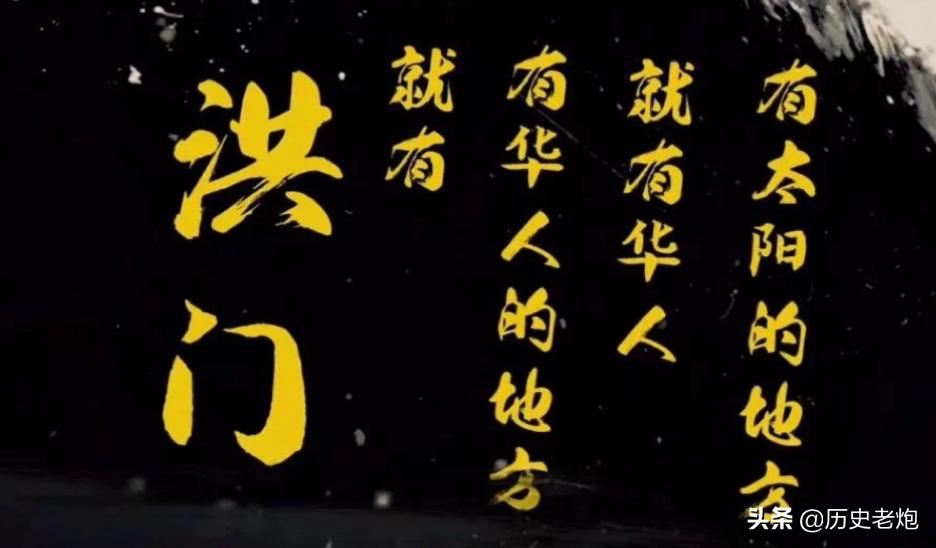 有太阳的地方
就有华人
有华人的地方
就有
洪门
头条 @历史老炮